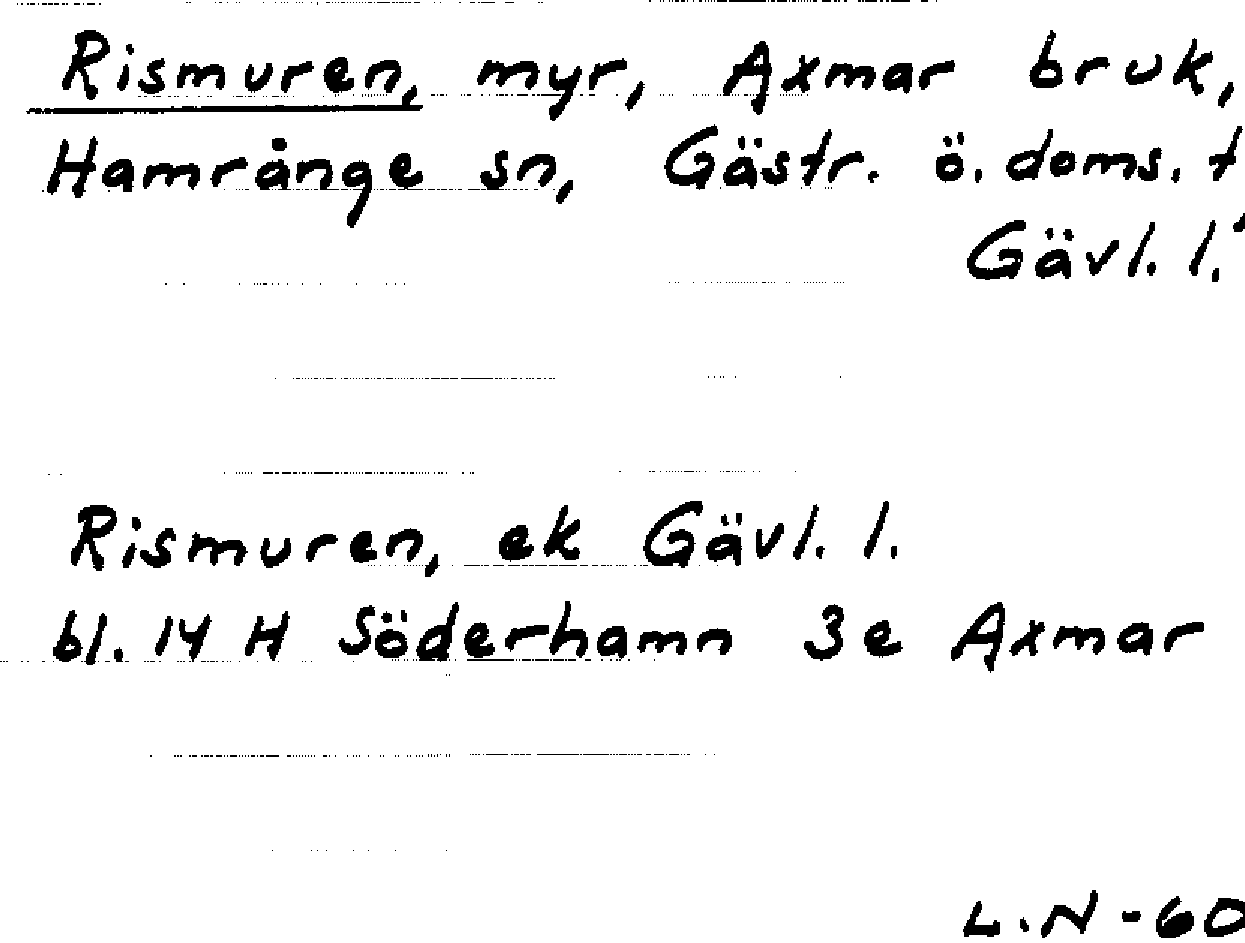 Rismuren, myr, Axmar bruk,
Hamrånge sn, Gästr. ö. doms. t
Gävl. l.
Rismuren, ek Gävl. l.
bl. 14 H Söderhamn 3e Axmar
L.N-60